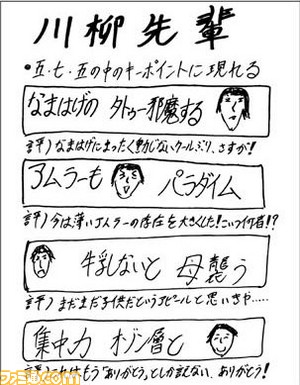 川柳先輩
•五・七・五の中のキーポイントに現れる
なまはげの 外トゥー邪魔する
評)なまはげにまったく動じないクールぶり、さすが!
アムラーも パラダイム
評)今は薄いアムラーの存在を大きくした!こいつ何者!?
牛乳ないと 母襲う
評)まだまだ子供だというアピールと思いきや……
集中力 オゾン層と
評)これはもう「ありがとう」としか言えない、ありがとう!
ファミ通.com